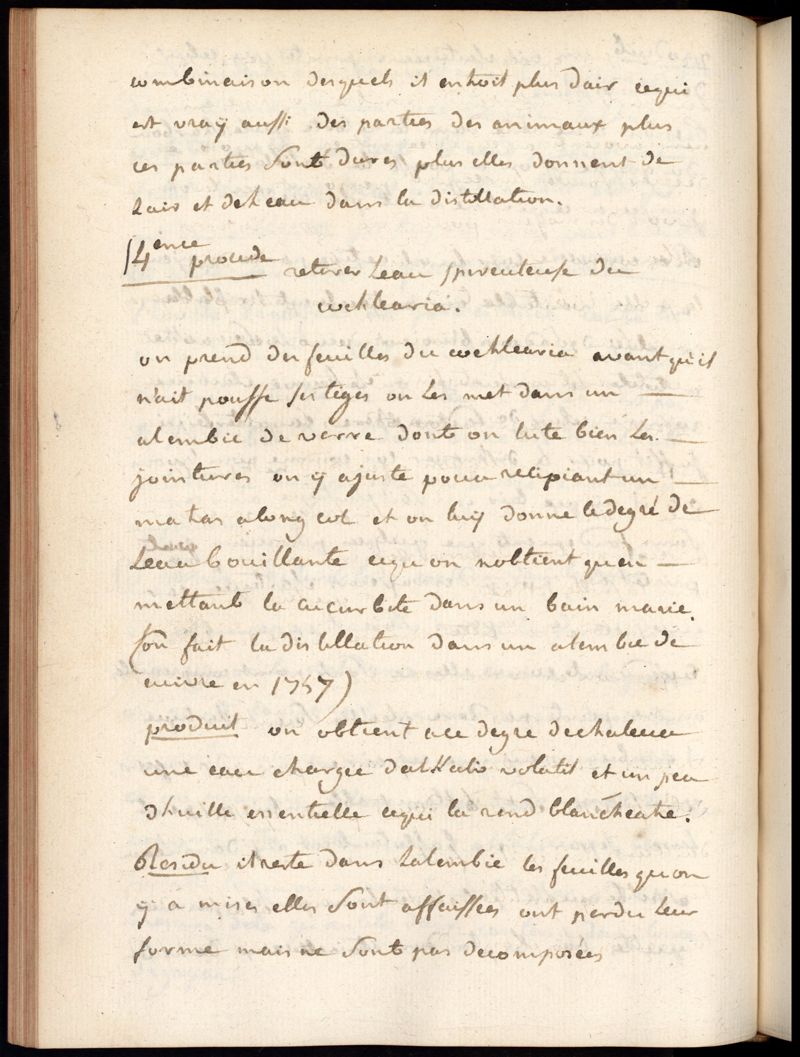 combinaison desquels il entroit plus dair cequi
est vray aussi des parties des animaux plus
ces parties sont dures plus elles donnent de
lair et de leau dans la distillation.
14 eme procede retirer leau spiriteuse du
cochlearia.
on prend des feuilles du cochlearia avant quil
nait pousse ses tiges on les met dans un
alembic de verre dont on lute bien les
jointures on y ajuste pour recipiant un
matras a long col et on luy donne le degré de
leau bouillante cequon nobtient quen
mettant la cucurbite dans un bain marie.
(on fait la distillation dans un alembic de
cuivre en 1757)
produit on obtient a ce degre de chaleur
une eau chargée dalkali volatil et un peu
dhuille essentielle cequi la rend blancheatre.
Residu il reste dans lalembic les feuilles quon
y a mises elles sont affaissées ont perdu leur
forme mais ne sont pas decomposées